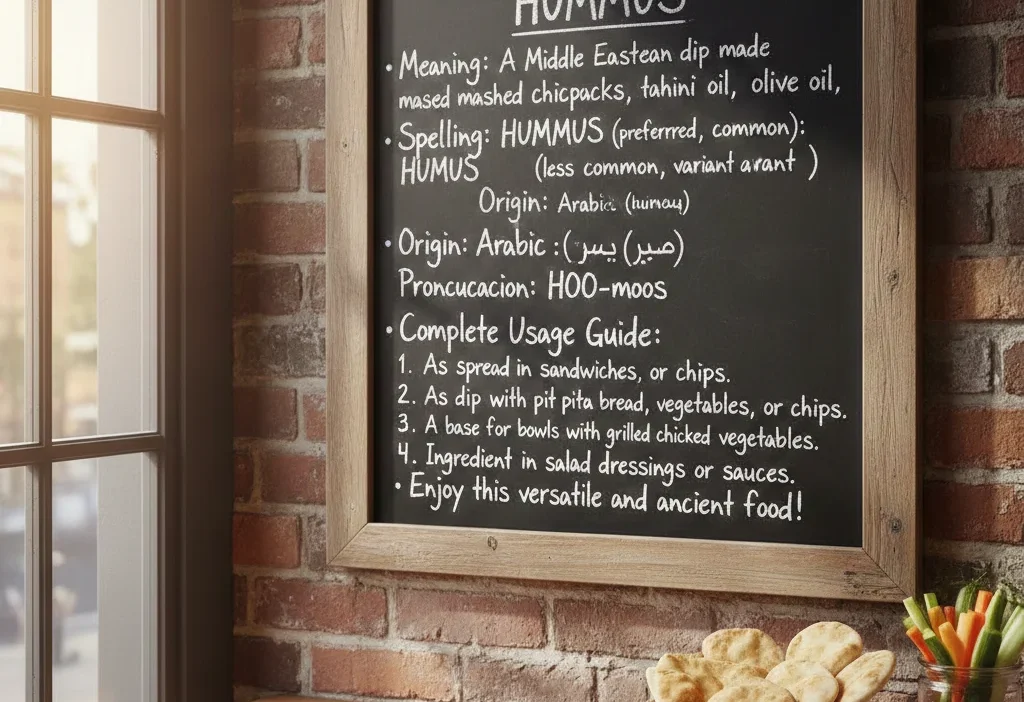 HUMMUS
• Meaning: A Middle Eastean dip made
mased mashed chicpacks, tahini oil, olive oil,
• Spelling: HUMMUS (preferrred, common):
HUMUS (less common, variant
Origin: Arabic
• Origin: Arabic :(
Proncucacion: HOO-moos
• Complete Usage Guide:
1. As spread in sandwiches, or chips.
2. As dip with pit pita bread, vegetables, or chips.
3. A base for bowls with grilled chicked vegetables.
4. Ingredient in salad dressings or sauces.
• Enjoy this versatile and ancient food!